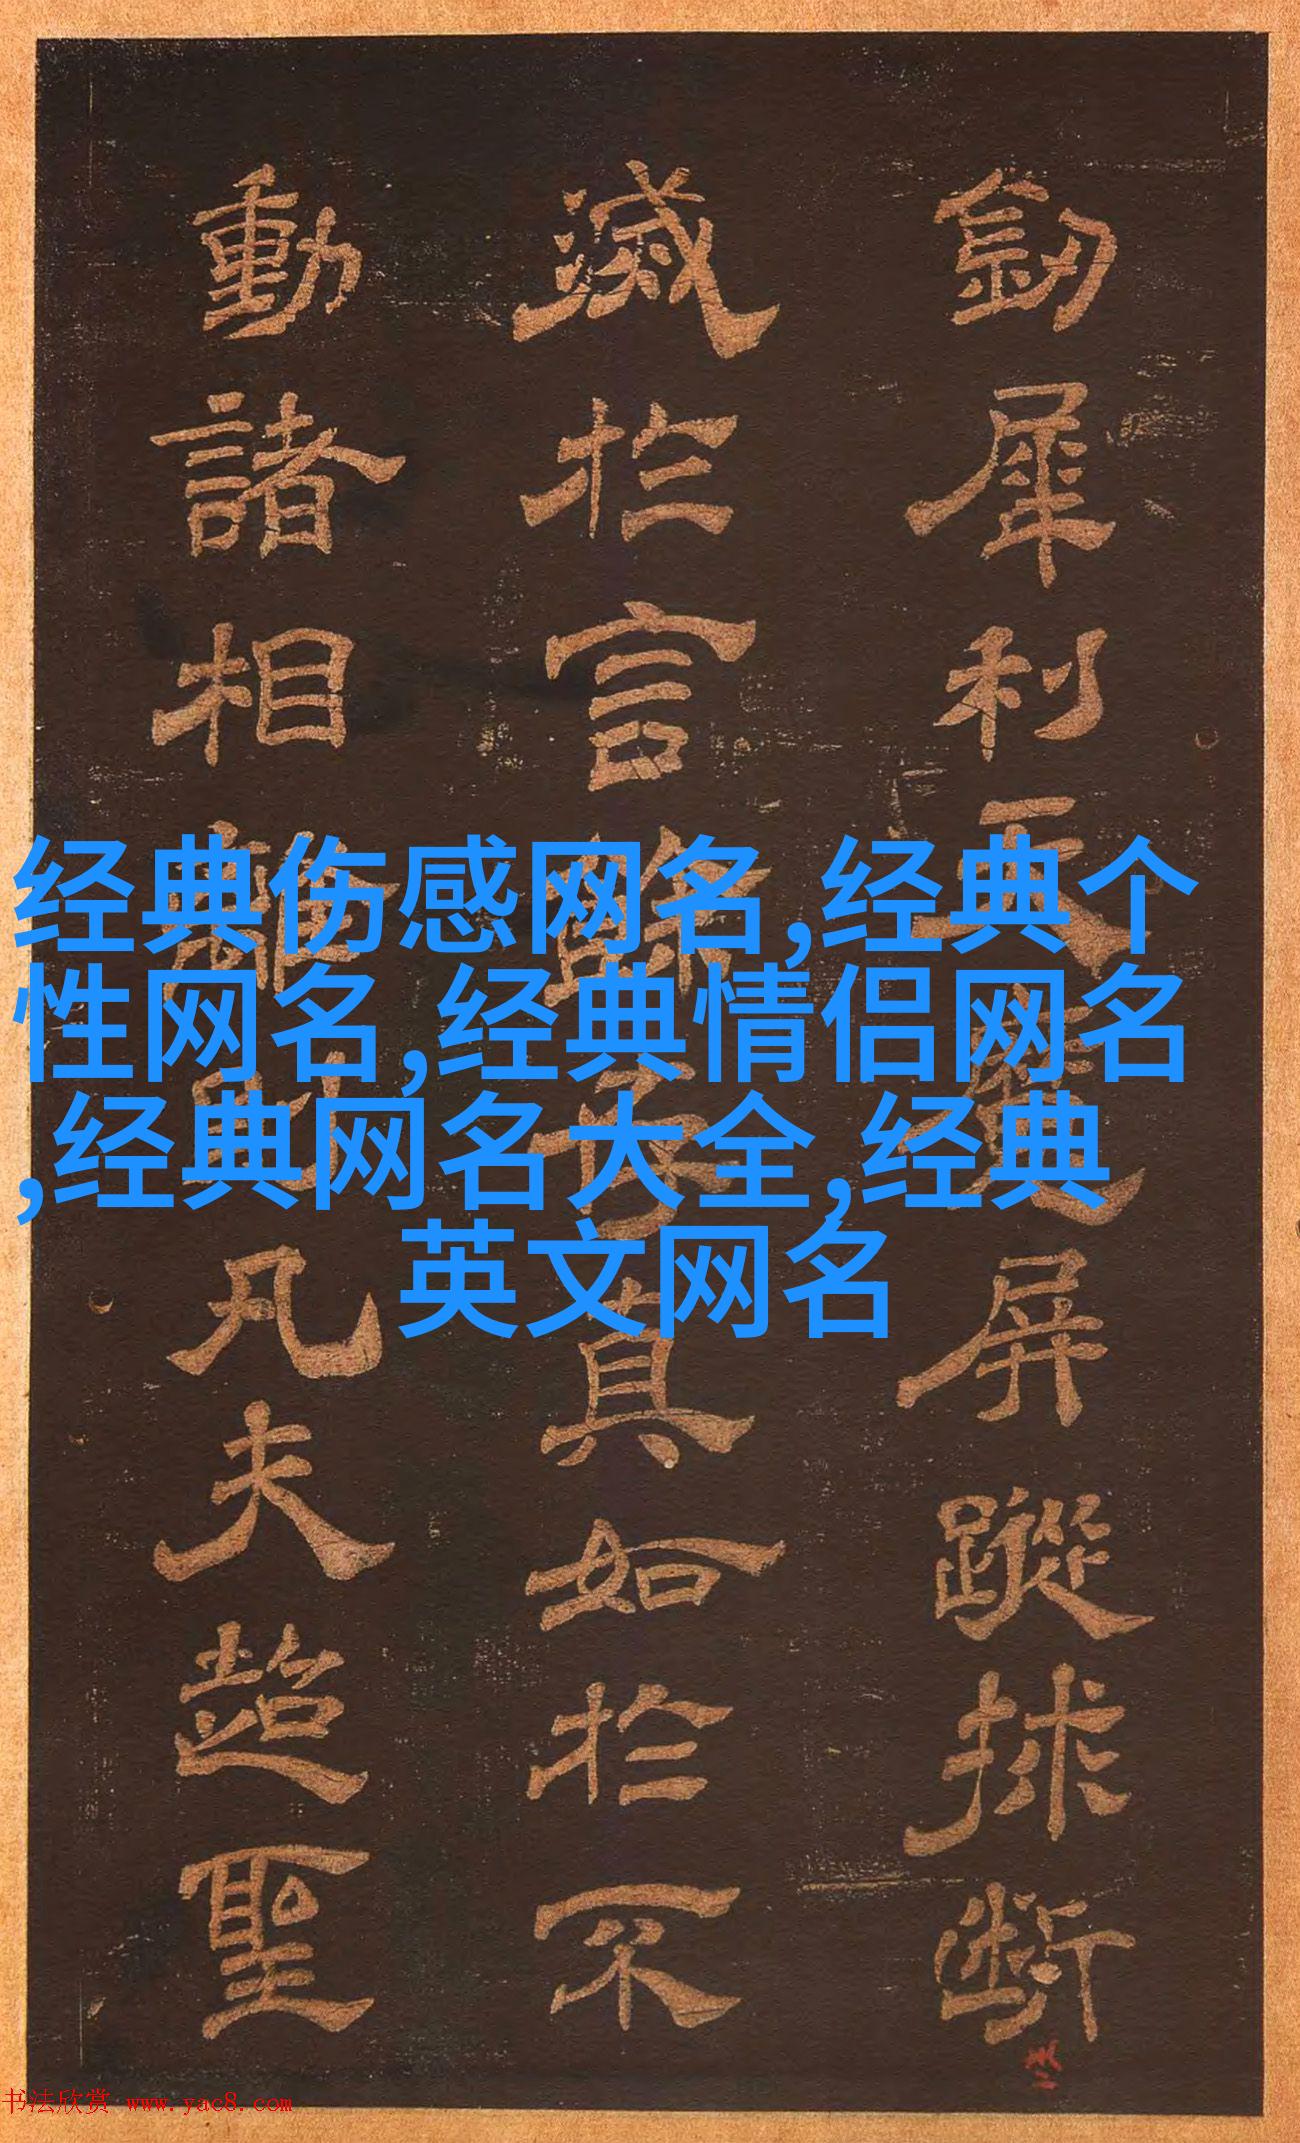 劒犀利天魔屏蹤揉斷
滅於言辭去真如於不
動諸相離
凡夫超聖
经典伤感网名,经典个
性网名,经典情侣网名
,经典网名大全,经典
英文网名
书法欣赏 www.yac8.com